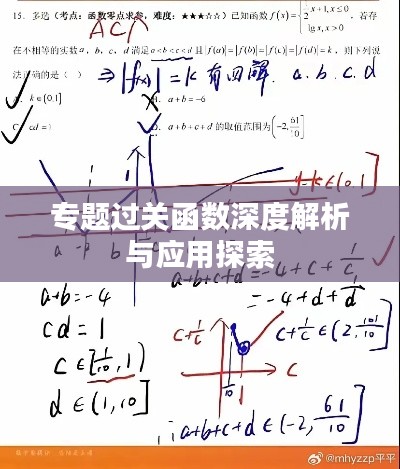 15. 多选（考点：函数零点求参，难度：★★★☆☆）已知函数 f(x)= { x+1, x≤0
lg x, x>0 ，若存
ACD
在不相等的实数 a，b，c，d 满足 a<b<c<d 且 |f(a)|=|f(b)|=|f(c)|=|f(d)|=k，则下列说
法正确的是（ ）
⇒ |f(x)|=k 有四解. a. b. c. d
A. k∈(0,1]
B. a+b=-6
C. cd=1
D. a+b+c+d 的取值范围为(-2, 61/10]
y=k∈(0,1]
专题过关函数深度解析
与应用探索
a+b=-4
=-4+c+1/c
=-4+d+1/d
cd=1
c∈[1/10,1)
d∈(1,10]
c+1/c
c+1/c∈(2,101/10]
1/10
1
c
∴a+b+c+d∈(-2,61/10]
@mhyzzp平平